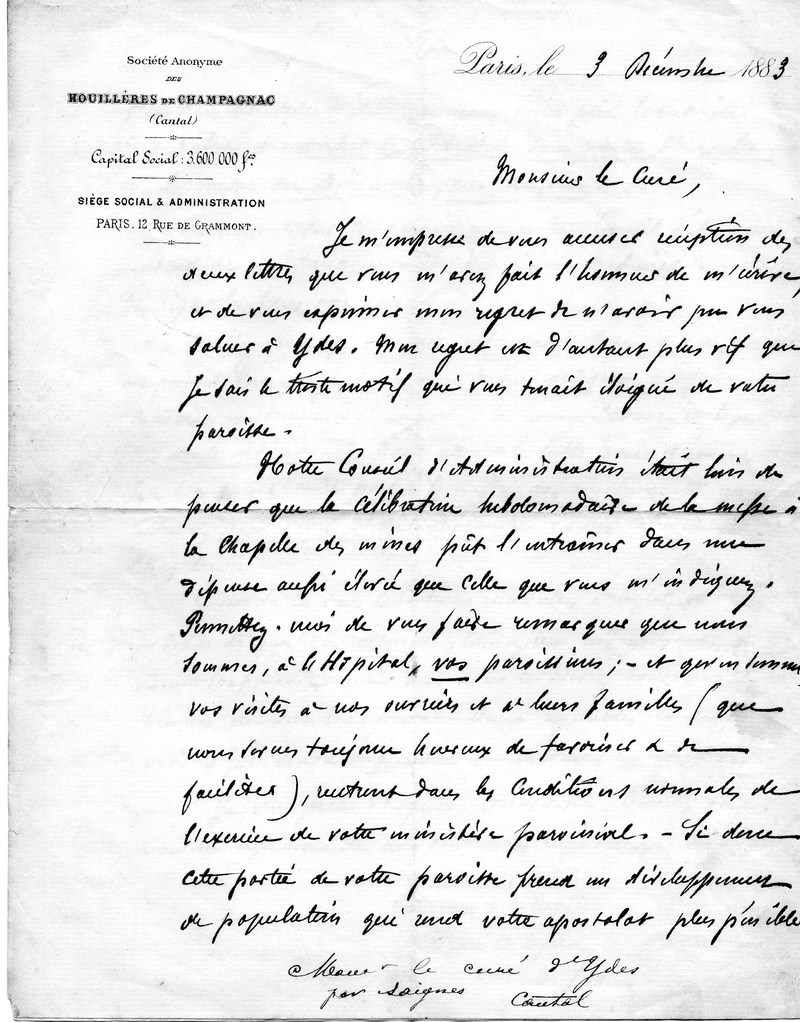 Société Anonyme
DES
HOUILLÈRES DE CHAMPAGNAC
(Cantal)
Capital Social : 3.600.000 fcs
SIÈGE SOCIAL & ADMINISTRATION
PARIS. 12 RUE DE GRAMMONT.
Paris, le 3 Décembre 1883
Monsieur le Curé,
Je m'empresse de vous accuser réception des
deux lettres que vous m'avez fait l'honneur de m'écrire,
et de vous exprimer mon regret de n'avoir pu vous
saluer à Ydes. Mon regret est d'autant plus vif que
je sais le triste motif qui vous tenait éloigné de votre
paroisse.
Notre Conseil d'Administration était loin de
penser que la célébration hebdomadaire de la messe à
la Chapelle des mines pût l'entraîner dans une
dépense aussi élevée que celle que vous m'indiquez.
Permettez-moi de vous faire remarquer que nous
sommes, à l'Hôpital, vos paroissiens ; - et qu'en somme
vos visites à nos ouvriers et à leurs familles (que
nous serons toujours heureux de favoriser & de
faciliter), rentrent dans les conditions normales de
l'exercice de votre ministère paroissial. - Si donc
cette partie de votre paroisse prend un développement
de population qui rend votre apostolat plus pénible
Monsr le curé d'Ydes
par Saignes
Cantal